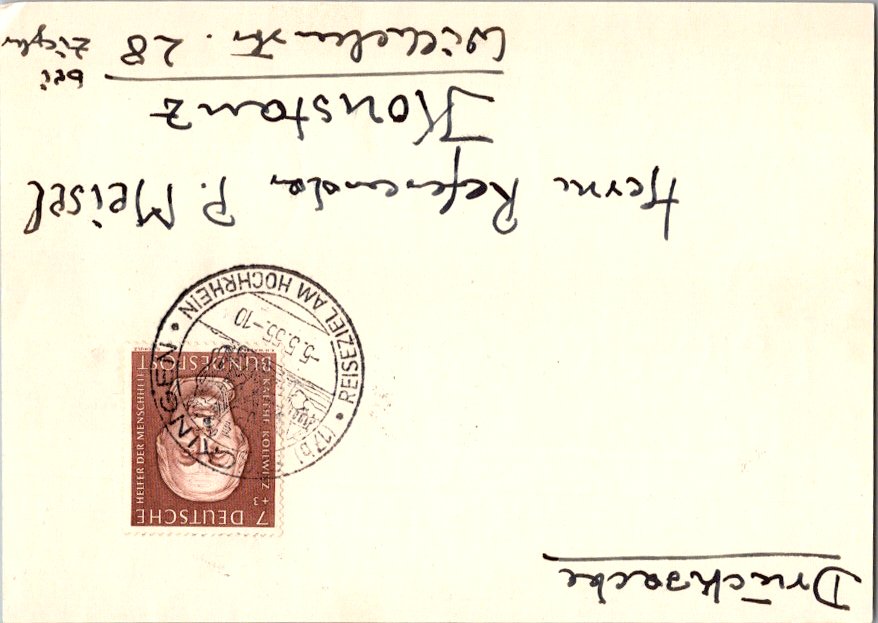 Drucksache
7 DEUTSCHE
HELFER DER MENSCHHEIT
KAETHE KOLLWITZ +3
BUNDESPOST
(17b) GAILINGEN
• REISEZIEL AM HOCHRHEIN •
-5.5.55-10
Herrn Referendar P. Meisel
Konstanz
bei Ziegler
Wilhelmstr. 28